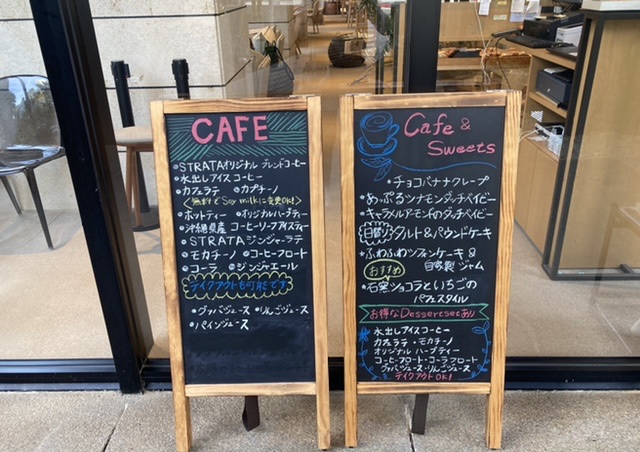 CAFE
・STRATAオリジナル ブレンドコーヒー
・水出しアイスコーヒー
・カフェラテ ・カプチーノ
<無料でSoy milkに変更OK!>
・ホットティー ・オリジナルハーブティー
・沖縄県産 コーヒーリーフアイスティー
・STRATA ジンジャーラテ
・モカチーノ ・コーヒーフロート
・コーラ ・ジンジャエール
テイクアウトも可能です
・グァバジュース ・りんごジュース
・パインジュース
Cafe &
Sweets
・チョコバナナクレープ
・あっぷるシナモンダッチベイビー
・キャラメルアーモンドのダッチベイビー
・日替りタルト & パウンドケーキ
・ふわふわシフォンケーキ &
おすすめ 自家製 ジャム
・石窯ショコラといちごの
パフェスタイル
お得なDessertsetあり
水出しアイスコーヒー
カフェラテ・モカチーノ
オリジナル ハーブティー
コーヒーフロート・コーラフロート
グァバジュース・りんごジュース
テイクアウトOK!